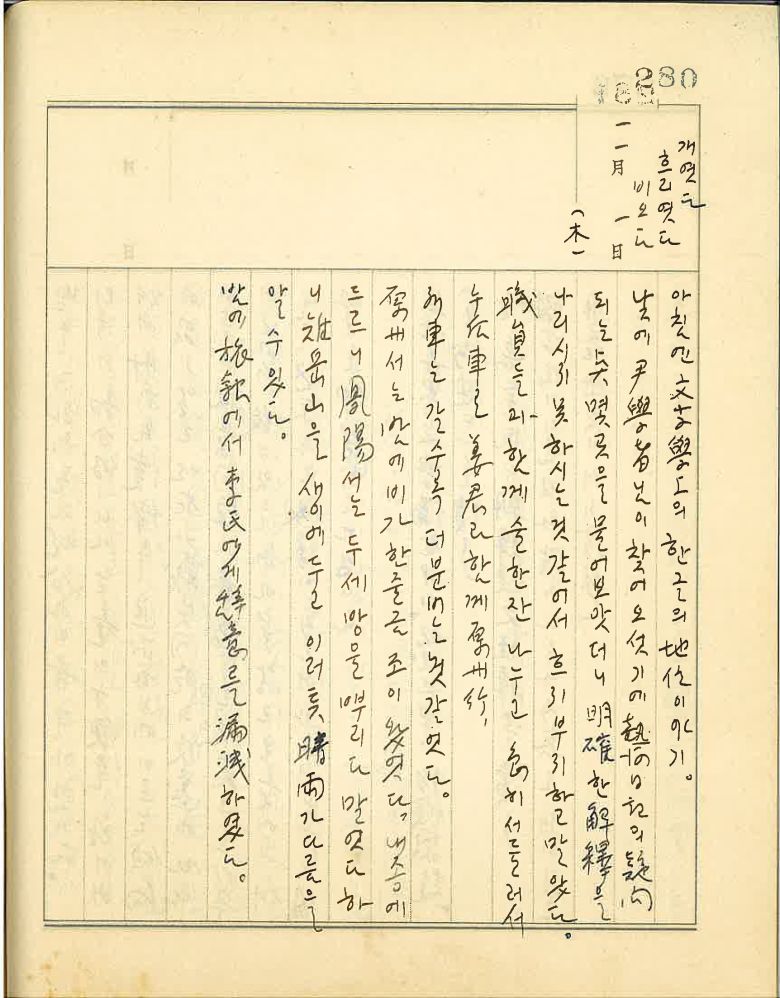 280
개엿드
흐리엿다
비오다
一一月 一日
(木)
아침엔 文字學上의 한글의 地位이야기。
낮에 尹學者님이 찾어오섯기에 熱河日記의 疑問
되는 듯 몇곳을 물어보앗더니 明確한 解釋을
나리시지 못하시는것 갈어서 흐리부리하고 말앗다。
職員들과 함게 술한잔 나누고 급히서들러서
누汽車로 姜君과 함게 原州行,
列車는 갈수록 더분버는것 갈엇다。
原州서는 밤에비가 한줄금 조이 왓엇다, 내종에
드르니 鳳陽서는 두세방울 뿌리다 말엇다 하
니 雉岳山을 새이에두고 이러틋 晴雨가 다름을
알 수 있다。
밤에 旅館에서 李氏에게 을 漏洩하였다。